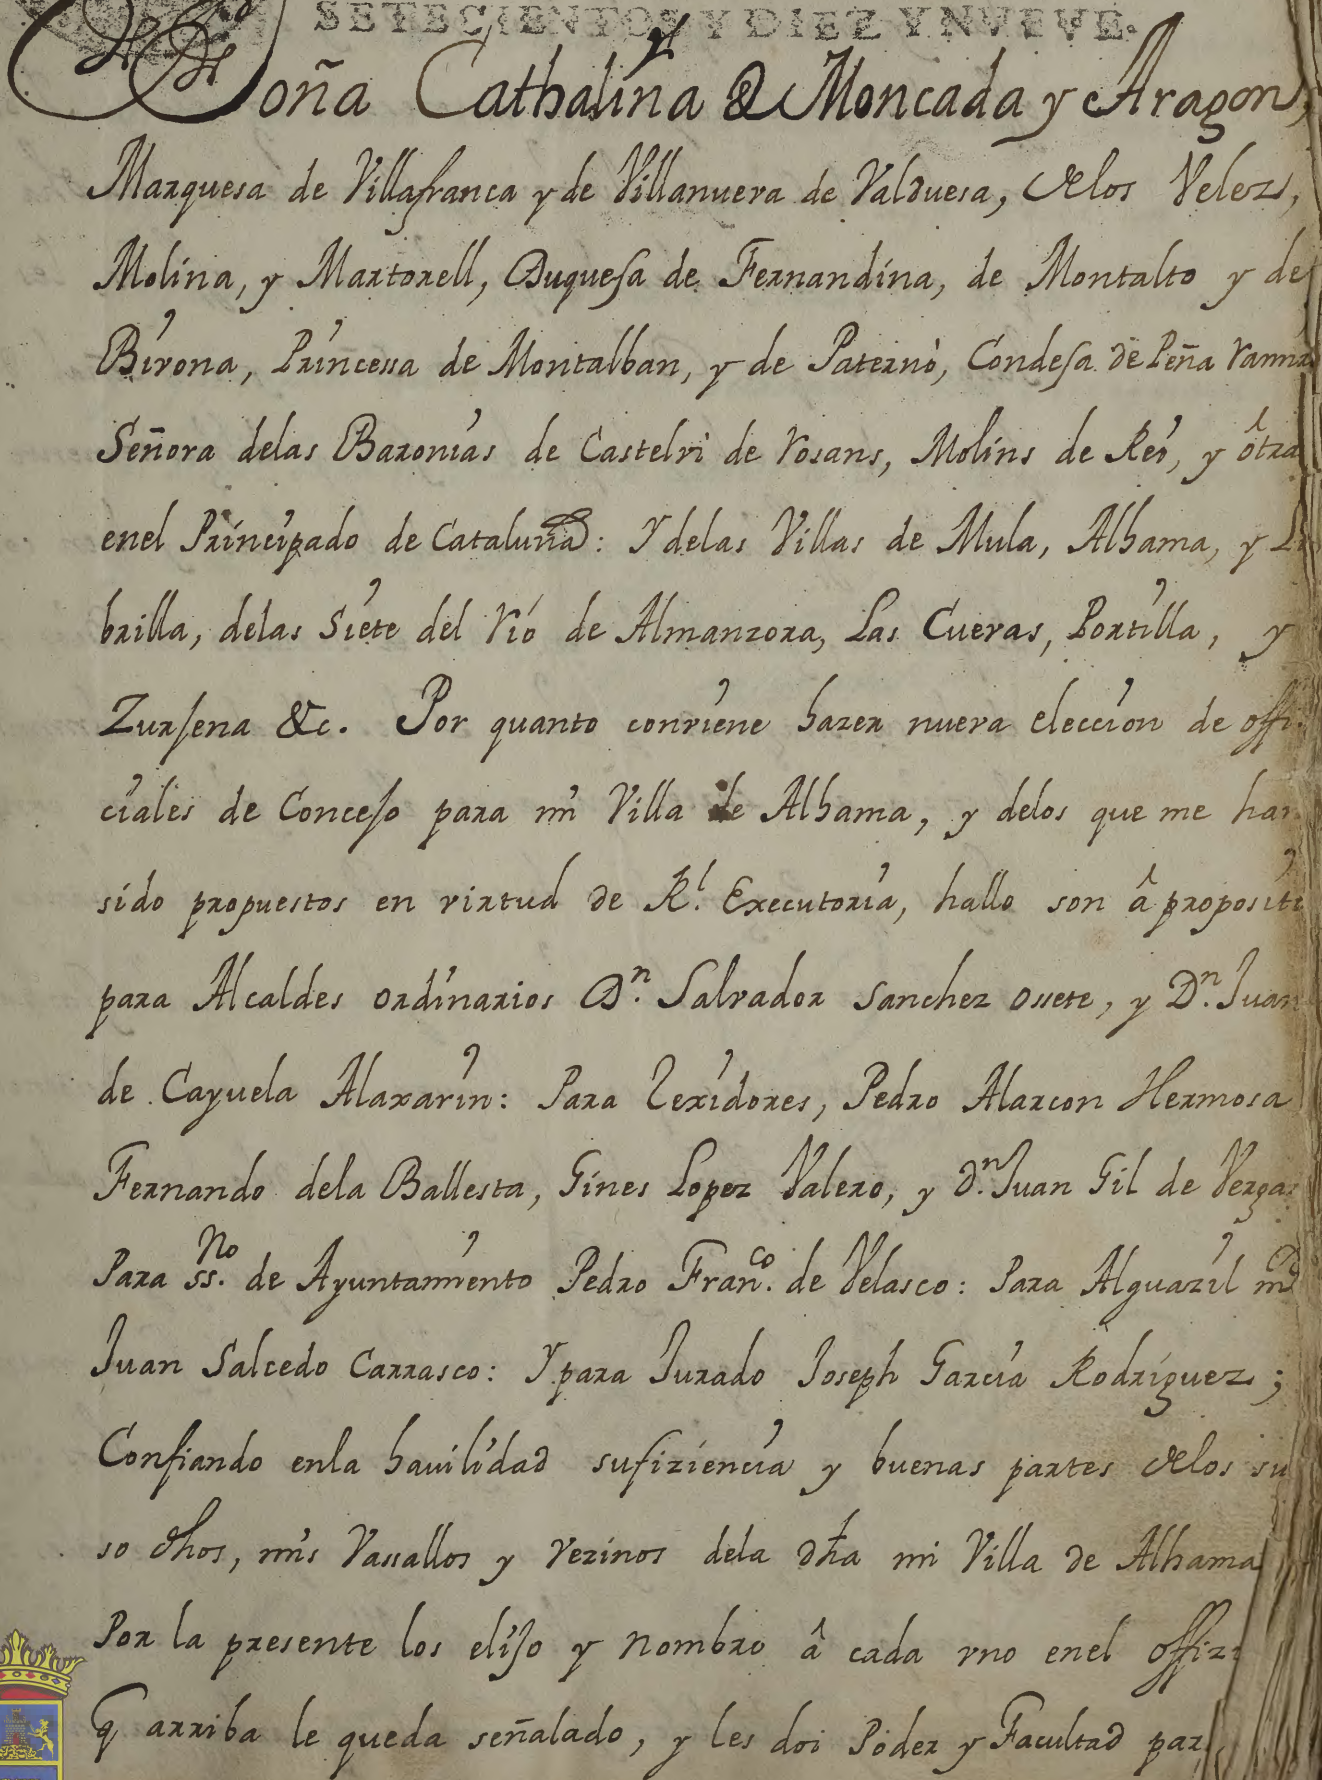 SETECIENTOS Y DIEZ Y NUEVE.
Doña Cathalina de Moncada y Aragon,
Marquesa de Villafranca y de Villanueva de Valduesa, delos Velez,
Molina, y Martorell, Duquesa de Fernandina, de Montalto y de
Bivona, Princessa de Montalban, y de Paternò, Condesa de Peña Ramir
Señora delas Baronias de Castelvi de Rosans, Molins de Rei, y ôtra
enel Principado de Cataluña: Y delas Villas de Mula, Alhama, y Li
brilla, delas Siete del Rió de Almanzora, Las Cuevas, Portilla, y
Zurjena &c. Por quanto conviene hazer nueva eleccion de offi
ciales de Concejo para mi Villa de Alhama, y delos que me han
sido propuestos en virtud de Rl. Executoria, hallo son â proposito
para Alcaldes ordinarios Dn. Salvador Sanchez Ossete, y Dn. Juan
de Cayuela Alaxarin: Para Rexidores, Pedro Alarcon Hermosa
Fernando dela Ballesta, Gines Lopez Valero, y Dn. Juan Gil de Verga
Para ssno. de Ayuntamiento Pedro Franco. de Velasco: Para Alguazil mor
Juan Salcedo Carrasco: Y para Jurado Joseph Garcia Rodriguez;
Confiando enla havilidad sufiziencia y buenas partes delos su
so dhos, mis Vassallos y vezinos dela dha mi Villa de Alhama
Por la presente los elijo y nombro â cada vno enel offizi
q arriba le queda señalado, y les doi Poder y Facultad par